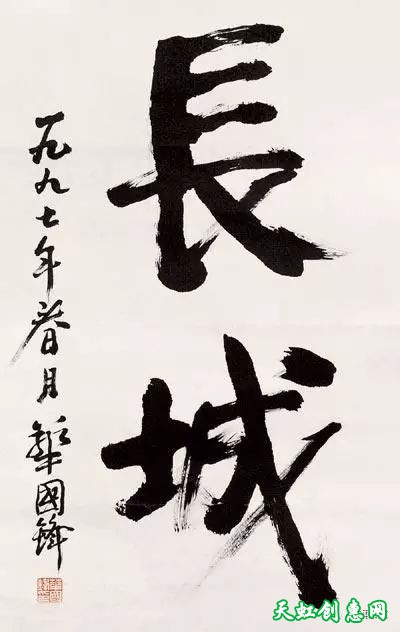 長城
一九九七年春月 華國鋒
天虹创惠网